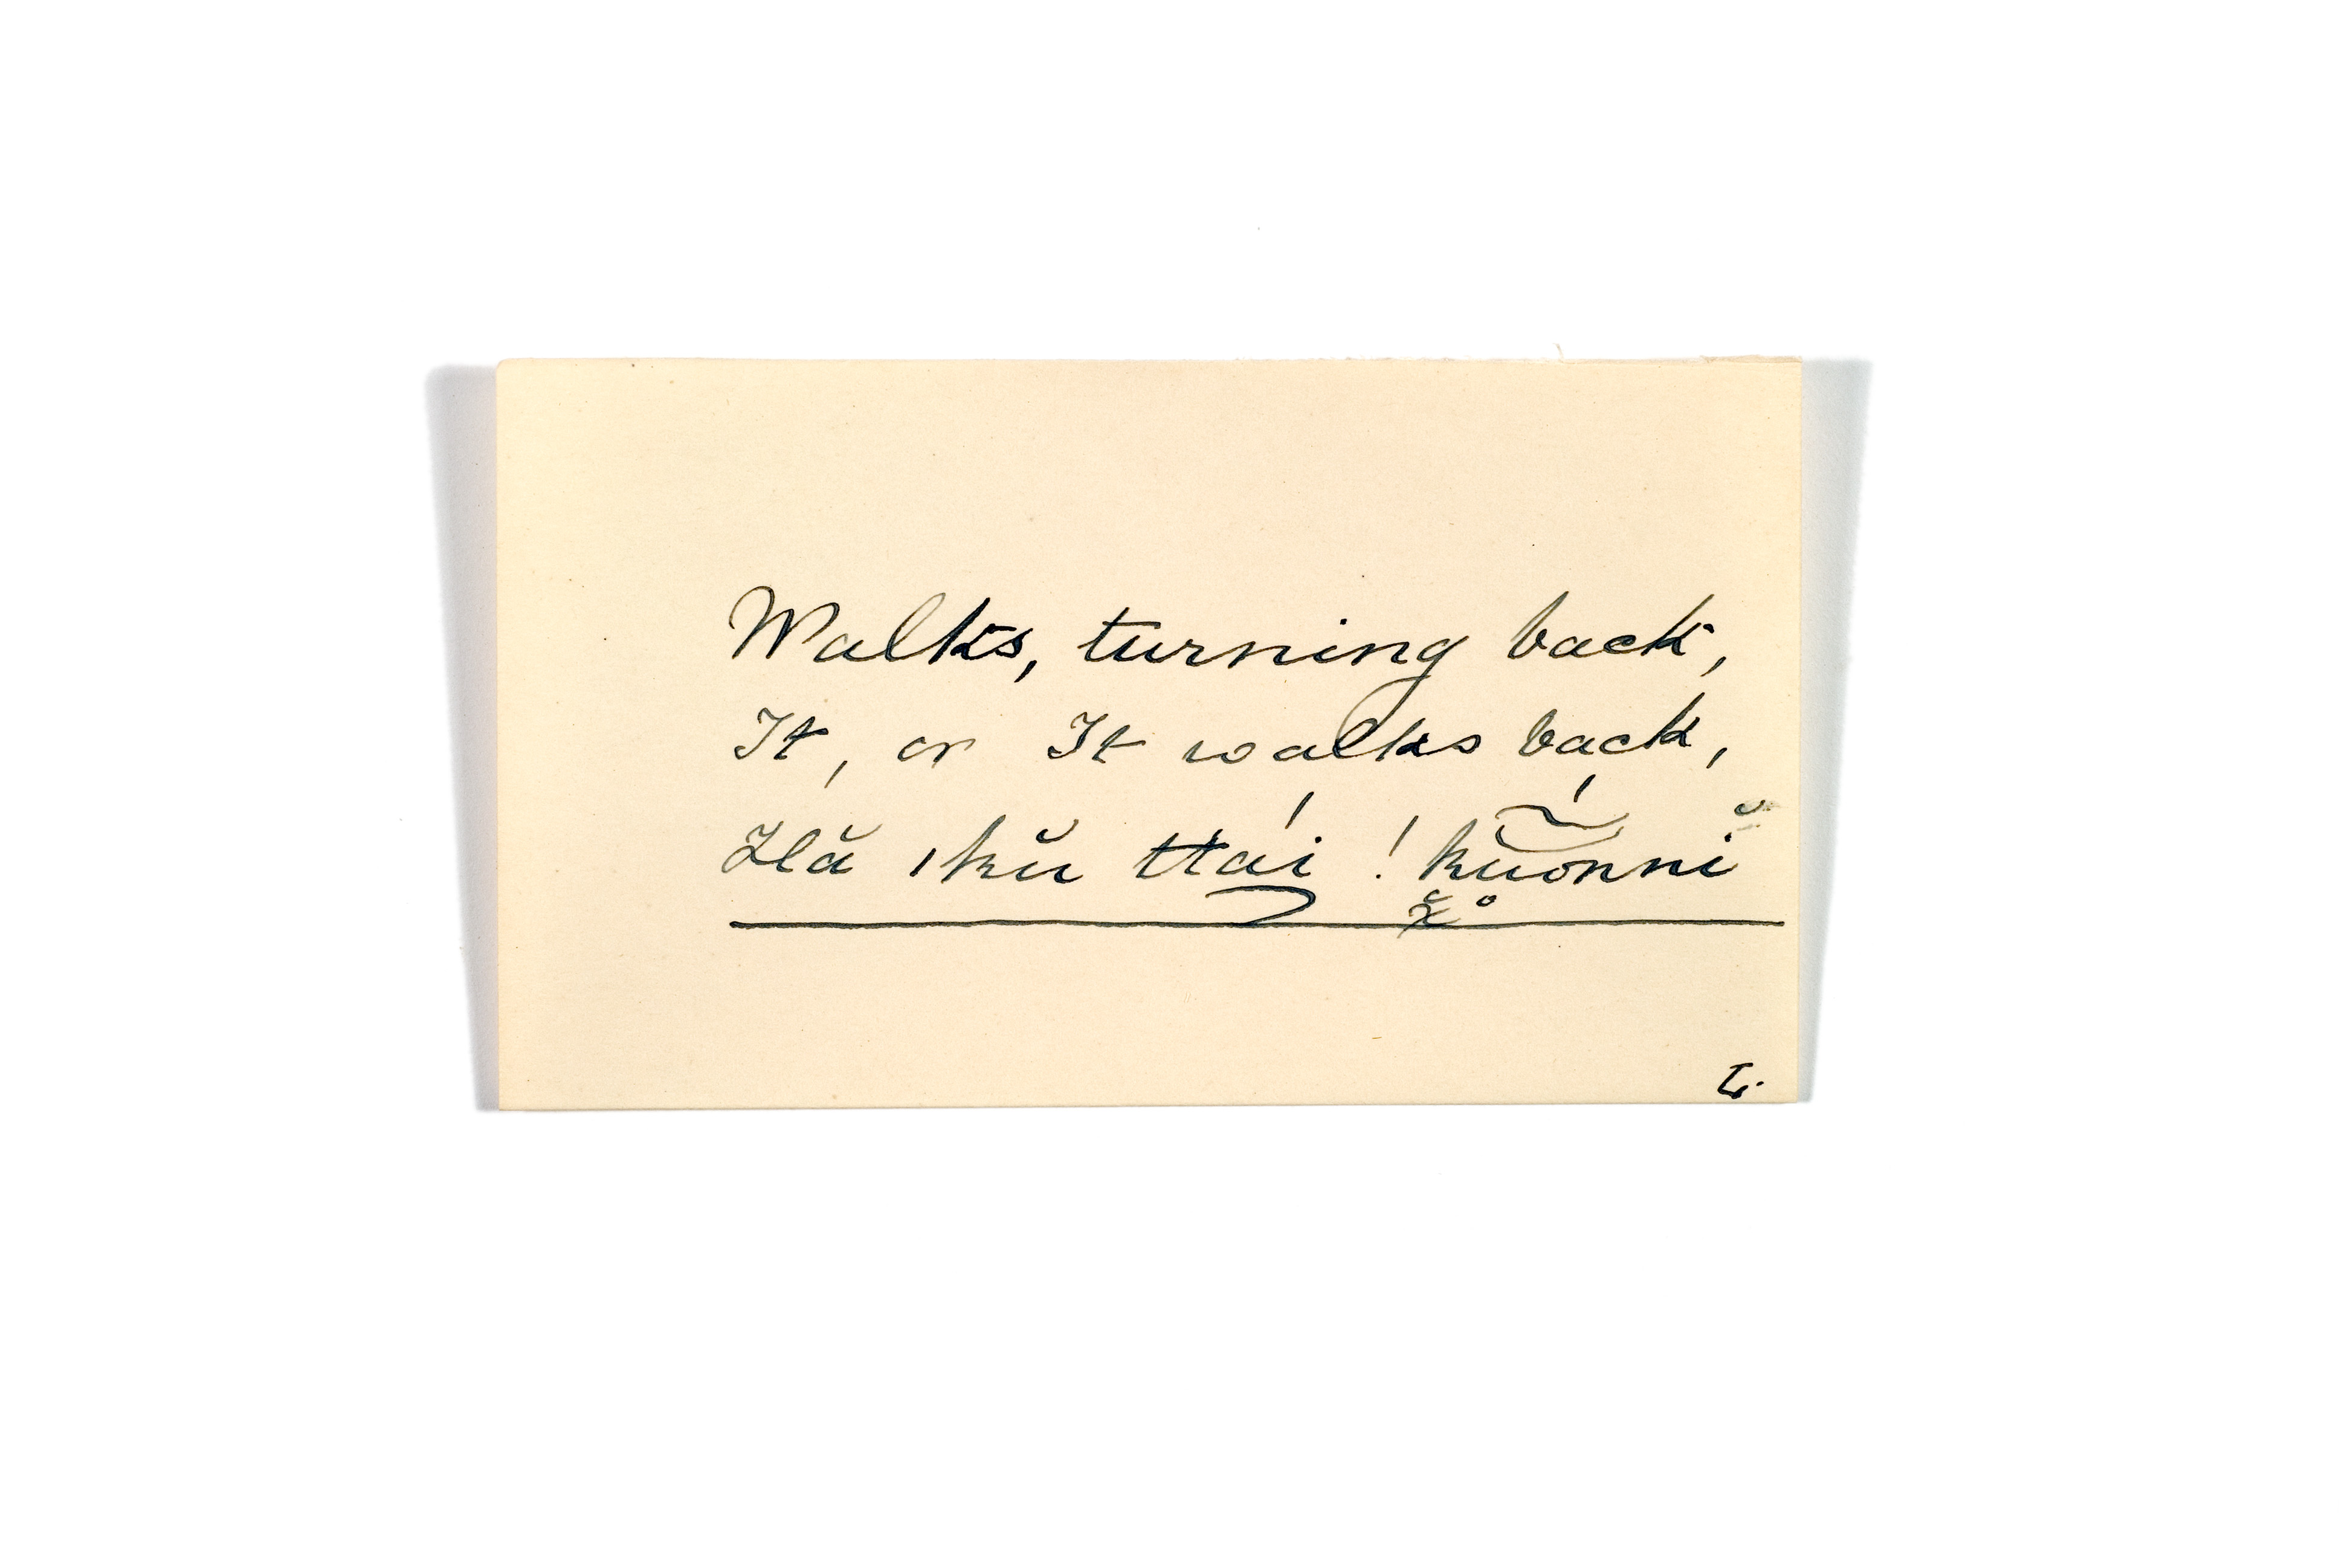 Walks, turning back,
It, or It walks back,
Hă ıkŭ ttái ! kŭónnĭ
L.